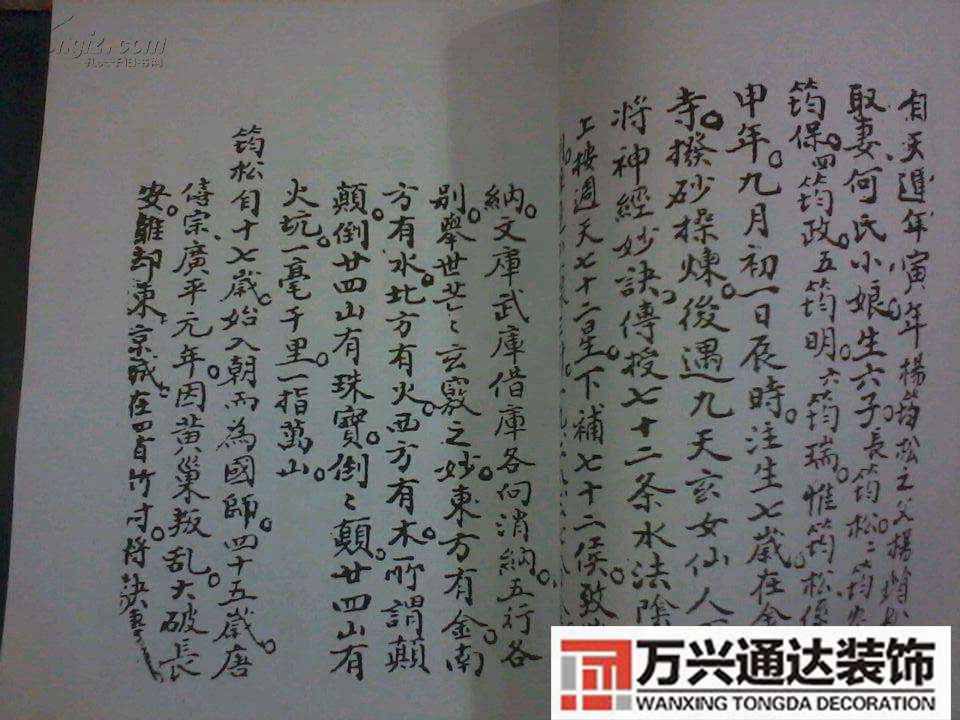 自天遁年寅年楊筠松之父楊
取妻何氏小娘生六子長筠松二筠
筠保四筠政五筠明六筠瑞惟筠松
甲年九月初一日辰時注生七歲在金
寺撥砂操煉後遇九天玄女仙人
將神經妙訣傳授七十二条水法陰
上按週天七十二星下補七十二侯致
納文庫武庫借庫各向消納五行各
別舉世茫〻玄竅之妙東方有金南
方有水北方有火西方有木所謂顛
顛倒廿四山有珠寶倒〻顛廿四山有
火坑一毫千里一指萬山
筠松自十七歲始入朝而為國師四十五歲唐
僖宗廣平元年因黃巢叛乱大破長
安離却東京城在四百竹寸將訣
kongfz.com
孔夫子旧书网
万兴通达装饰
WANXING TONGDA DECORATION